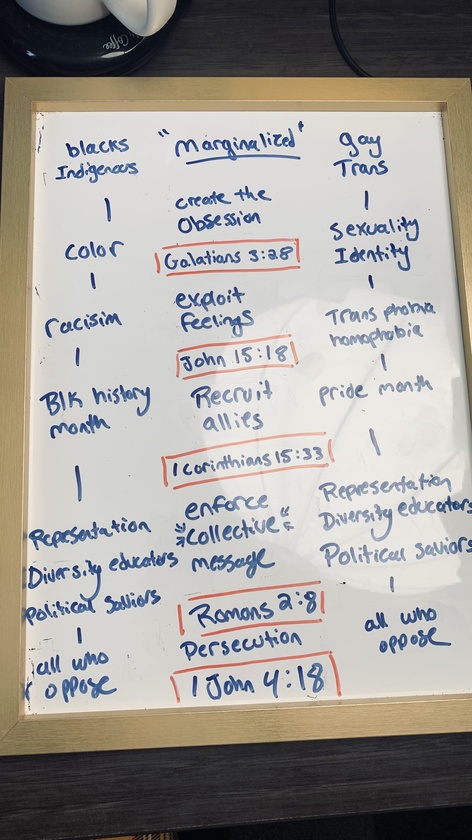 Coffee
blacks
Indigenous
|
Color
|
racisim
|
Blk history
month
|
Representation
Diversity educators
Political Saviors
|
all who
oppose
"Marginalized"
create the
Obsession
Galatians 3:28
exploit
feelings
John 15:18
Recruit
allies
1 Corinthians 15:33
enforce
"Collective"
message
Romans 2:8
Persecution
1 John 4:18
gay
Trans
|
Sexuality
Identity
|
Trans phobia
homophobia
|
pride month
|
Representation
Diversity educators
Political Saviors
|
all who
oppose